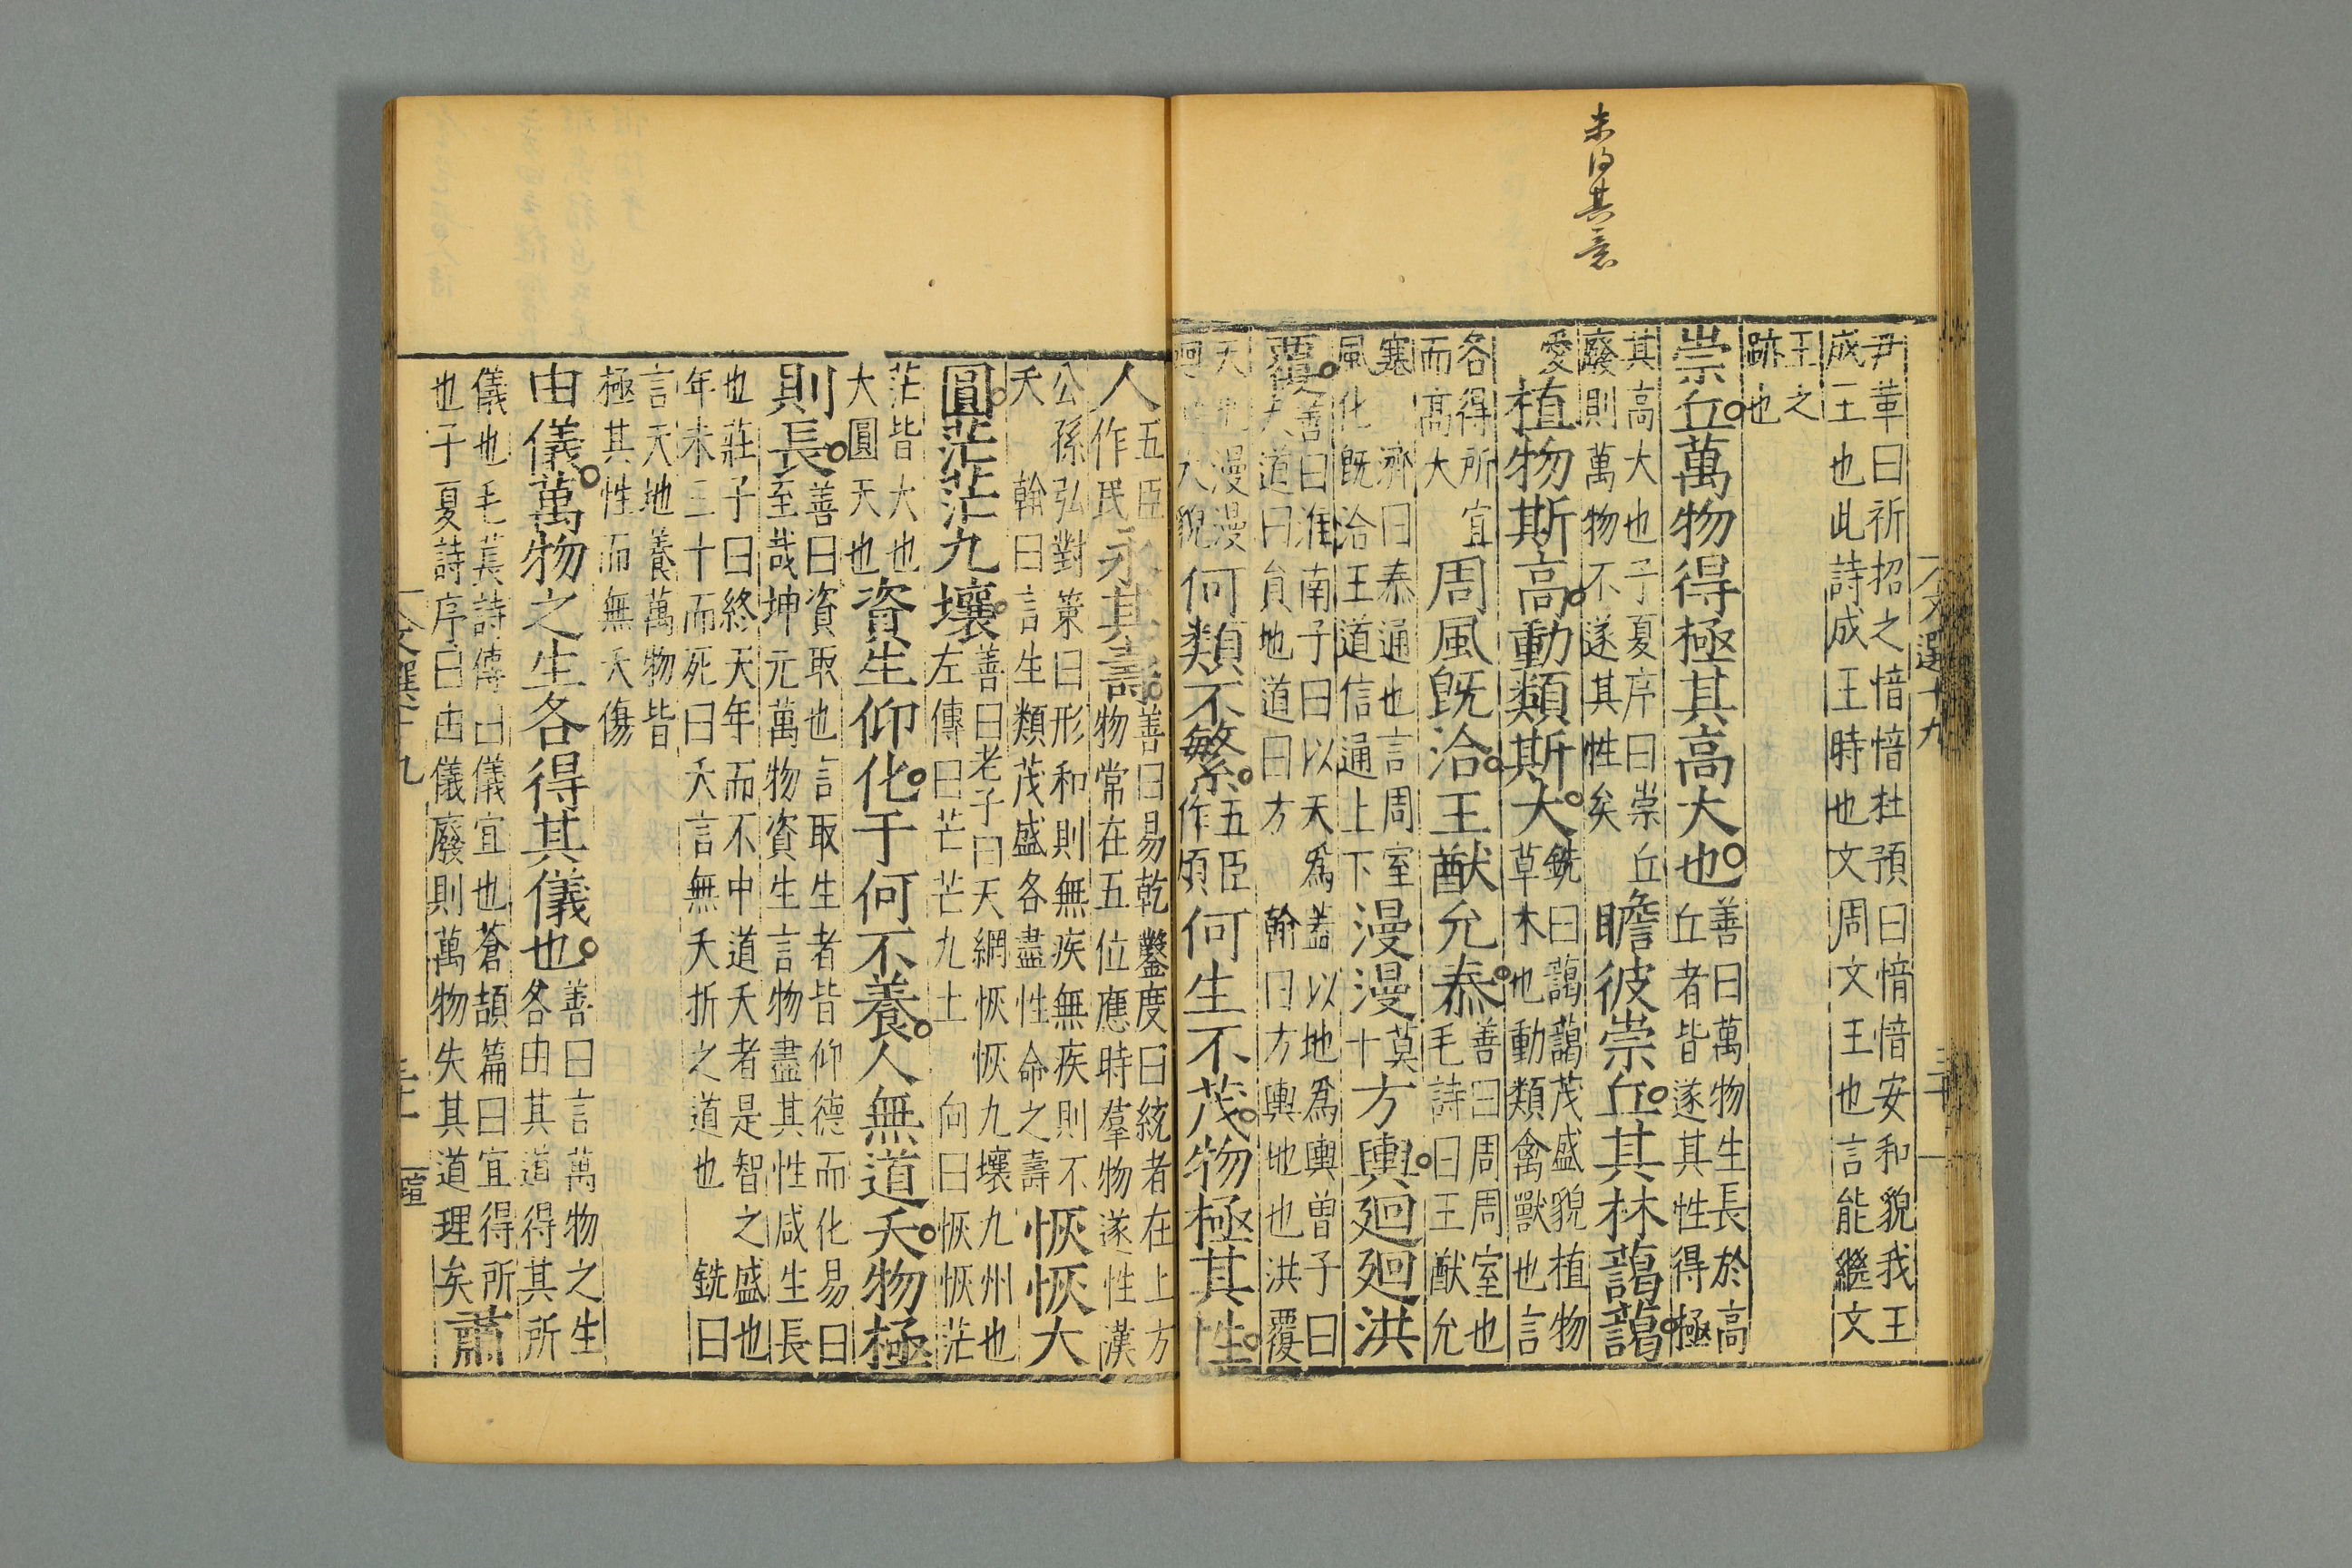 未得其意
尹革曰祈招之愔愔杜預曰愔愔安和貌我王
成王也此詩成王時也文周文王也言能繼文
王之
跡也
崇丘萬物得極其高大也
善曰萬物生長於高
丘者皆遂其性得極
其高大也子夏序曰崇丘
廢則萬物不遂其性矣
瞻彼崇丘其林藹藹
植物斯高動類斯大
銑曰藹藹茂盛貌植物
草木也動類禽獸也言
各得所宜
而高大
周風旣洽王猷允泰
善曰周周室也
毛詩曰王猷允
塞 濟曰泰通也言周室
風化旣洽王道信通上下
漫漫
莫
十
方輿廻廻洪
覆
善曰淮南子曰以天爲蓋以地爲輿曽子曰
天道曰員地道曰方 翰曰方輿地也洪覆
天也漫漫
大貌
何類不繁
五臣
作煩
何生不茂物極其性
人
五臣
作民
永其壽
善曰易乾鑿度曰統者在上方
物常在五位應時羣物遂性漢
公孫弘對策曰形和則無疾無疾則不
夭 翰曰言生類茂盛各盡性命之壽
恢恢大
圓茫茫九壤
善曰老子曰天網恢恢九壤九州也
左傳曰芒芒九土 向曰恢恢茫
茫皆大也
大圓天也
資生仰化于何不養人無道夭物極
則長
善曰資取也言取生者皆仰德而化易曰
至哉坤元萬物資生言物盡其性咸生長
也莊子曰終天年而不中道夭者是智之盛也
年未三十而死曰夭言無夭折之道也 銑曰
言天地養萬物皆
極其性而無夭傷
由儀萬物之生各得其儀也
善曰言萬物之生
各由其道得其所
儀也毛萇詩傳曰儀宜也蒼頡篇曰宜得所
也子夏詩序曰由儀廢則萬物失其道理矣
肅